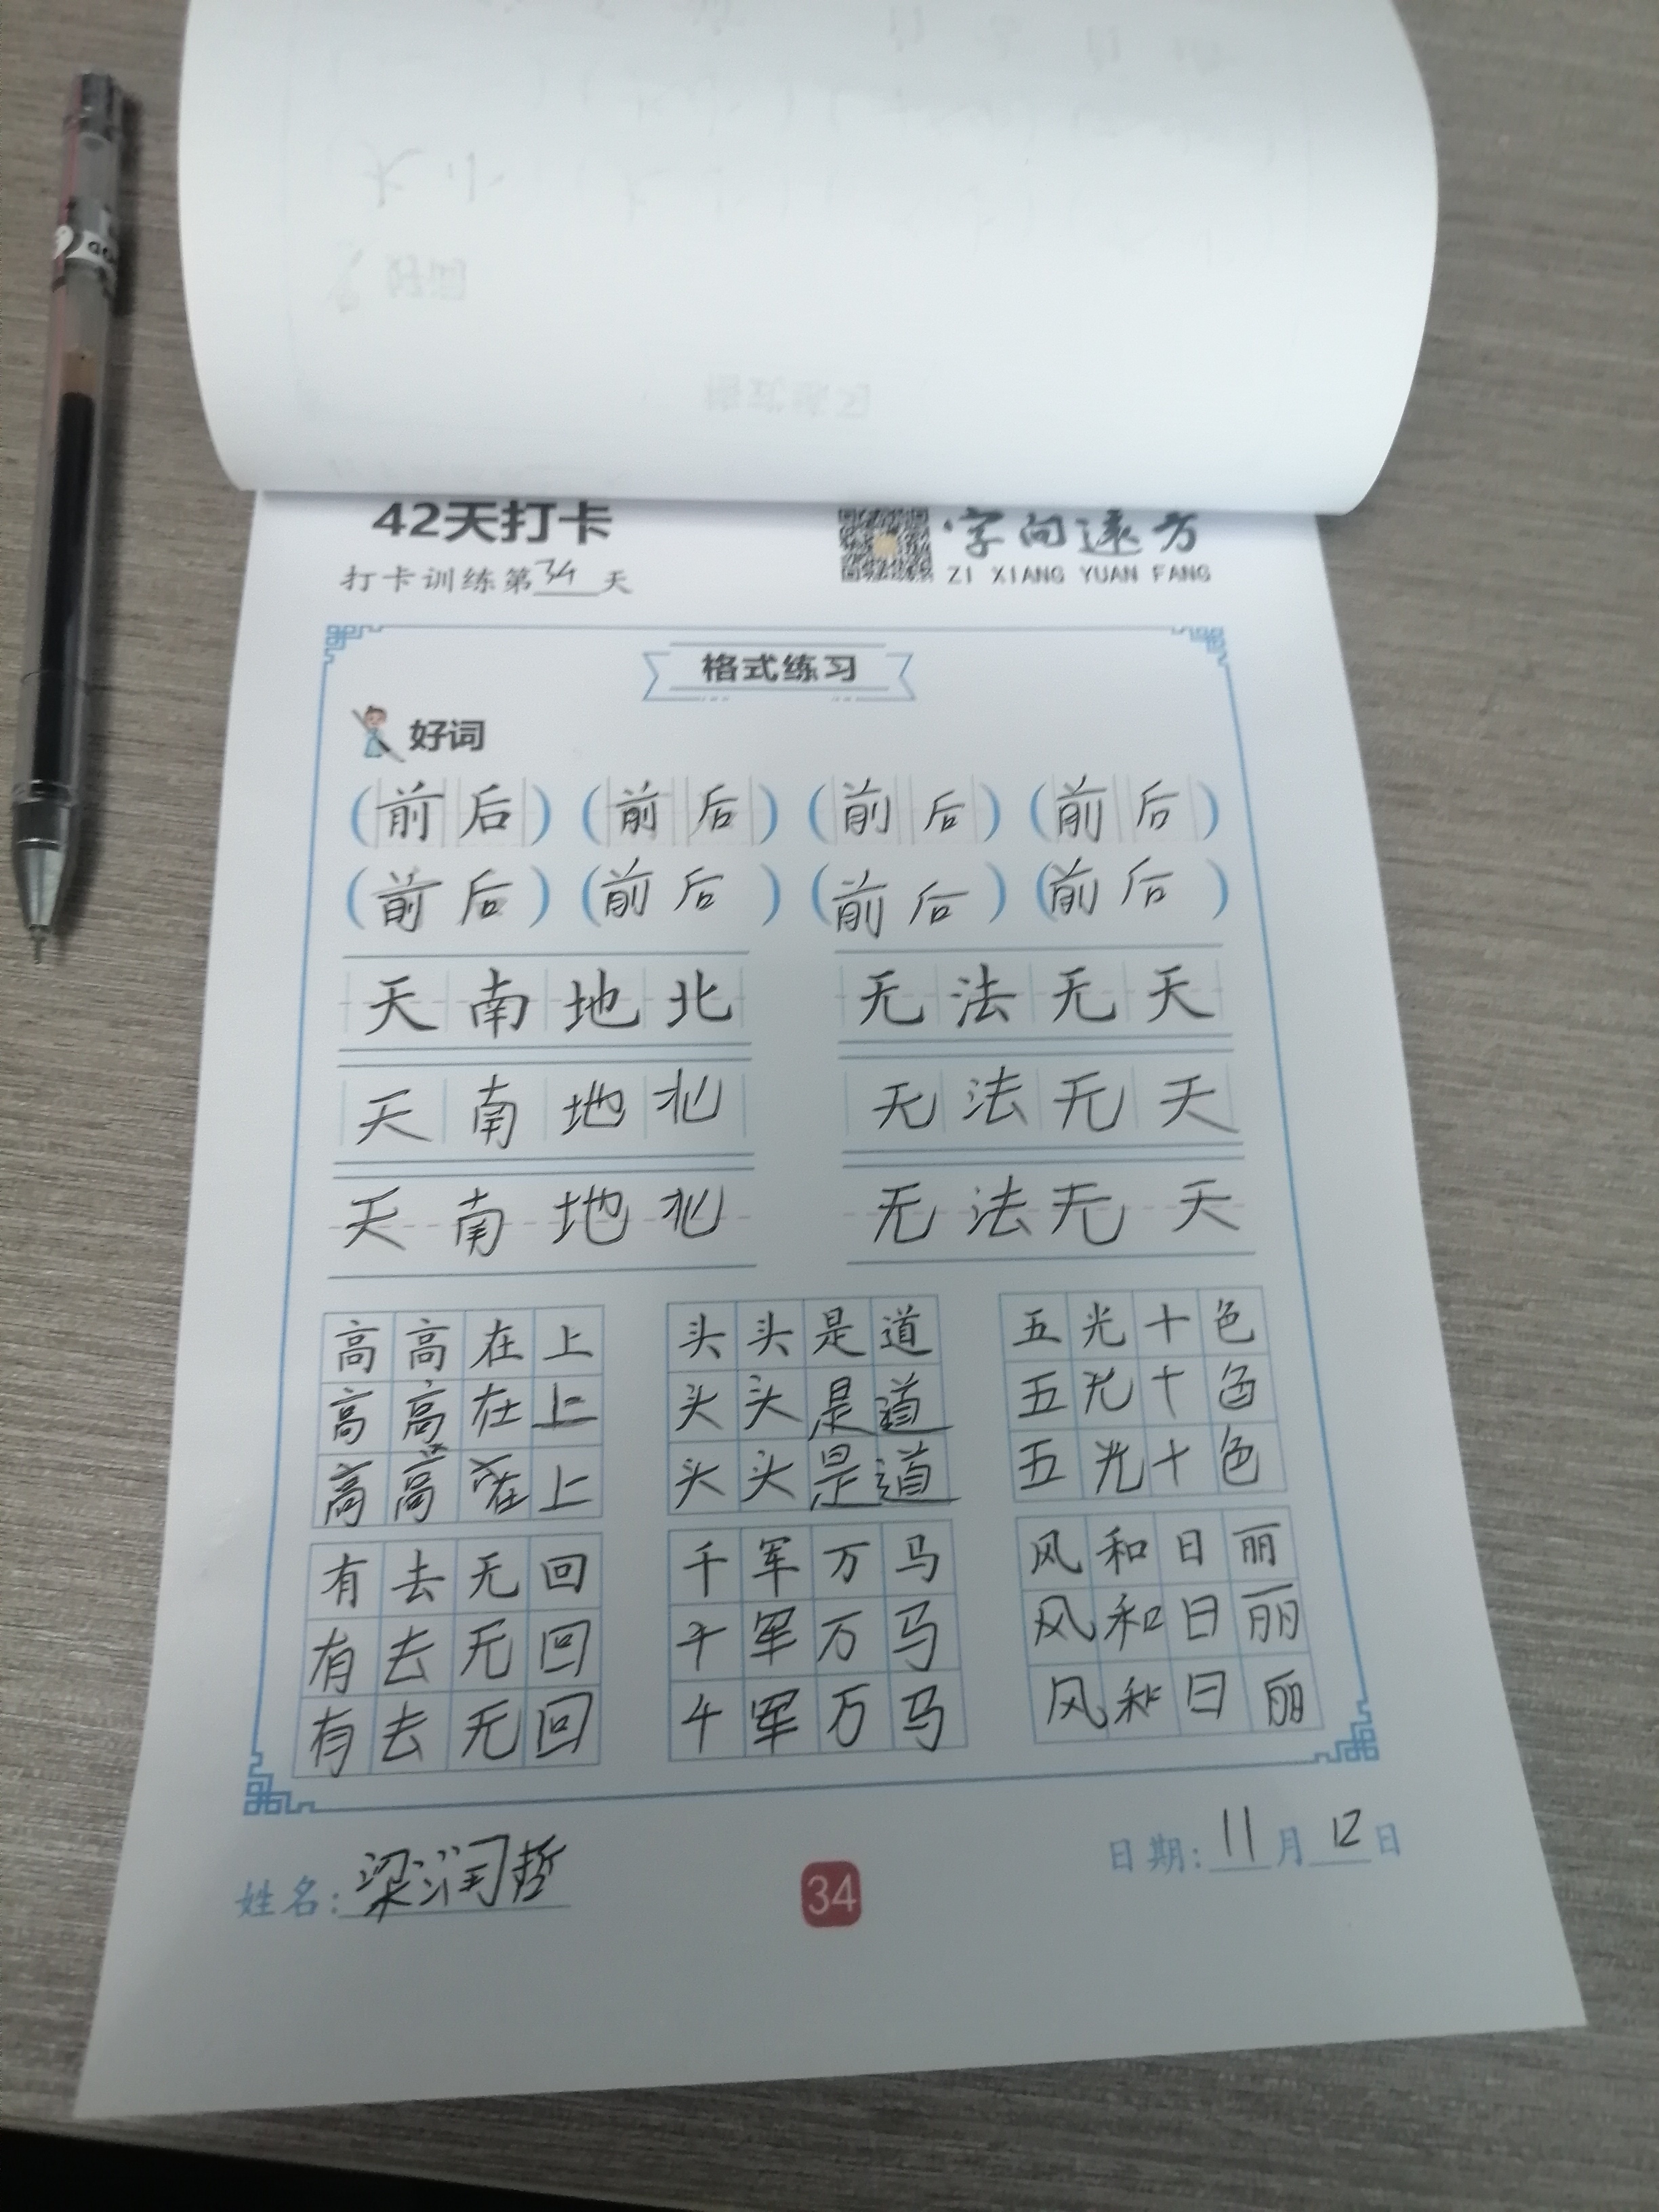 42天打卡
字向远方
打卡训练第34天
ZI XIANG YUAN FANG
格式练习
好词
(前后) (前后) (前后) (前后)
(前后) (前后) (前后) (前后)
天南地北 无法无天
天南地北 无法无天
天南地北 无法无天
高高在上 头头是道 五光十色
高高在上 头头是道 五光十色
高高在上 头头是道 五光十色
有去无回 千军万马 风和日丽
有去无回 千军万马 风和日丽
有去无回 千军万马 风和日丽
姓名:梁润哲
34
日期:11月12日